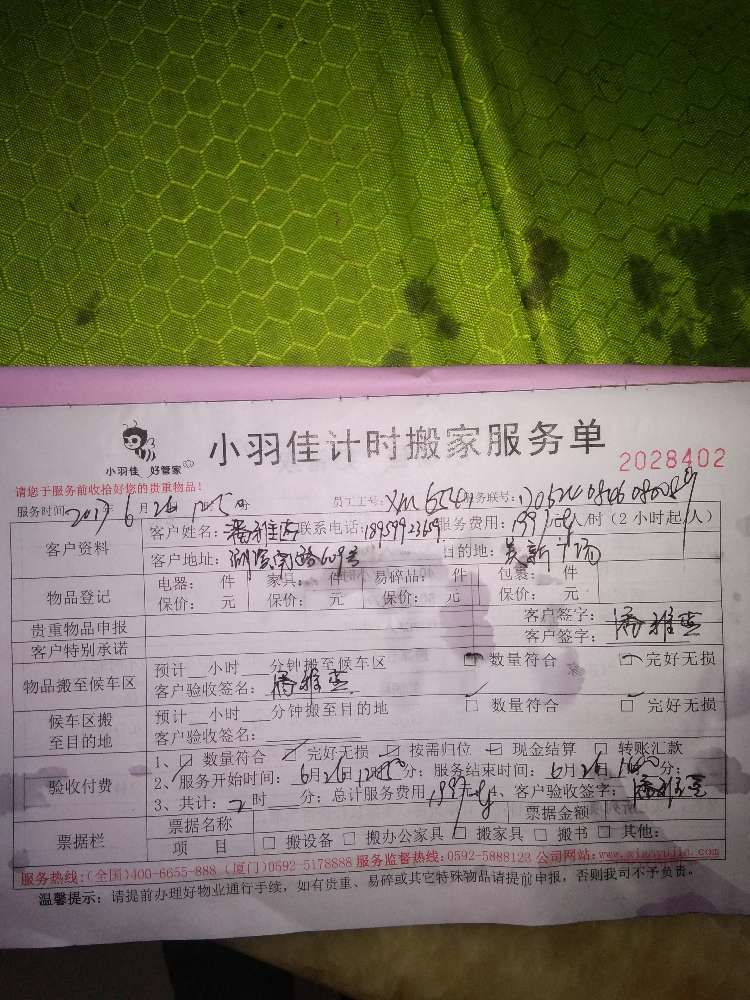 小羽佳 好管家
小羽佳计时搬家服务单
2028402
请您于服务前收拾好您的贵重物品!
服务时间 2017年6月26 12时 分 员工工号: XM654 服务联号:
客户资料
客户姓名: 联系电话: 服务费用: 元/人/时(2小时起/人)
客户地址: 目的地:
物品登记
电器: 件 家具: 件 易碎品: 件 包裹: 件
保价: 元 保价: 元 保价: 元 保价: 元
贵重物品申报 客户签字:
客户特别承诺 客户签字:
物品搬至候车区
预计__小时___分钟搬至候车区 □ 数量符合 □ 完好无损
客户验收签名:
候车区搬
至目的地
预计__小时___分钟搬至目的地 □ 数量符合 □ 完好无损
客户验收签名:
验收付费
1、☑ 数量符合 ☑ 完好无损 ☑ 按需归位 ☑ 现金结算 □ 转账汇款
2、服务开始时间: 6月26日12时 分; 服务结束时间: 6月26日 时 分;
3、共计: 2时 分; 总计服务费用 元 4、客户验收签字:
票据栏
票据名称 票据金额
项 目 □ 搬设备 □ 搬办公家具 □ 搬家具 □ 搬书 □ 其他:
服务热线:(全国)400-6655-888 (厦门)0592-5178888 服务监督热线:0592-5888123 公司网站:www.xiaoyujia.com
温馨提示: 请提前办理好物业通行手续,如有贵重、易碎或其它特殊物品请提前申报,否则我司不予负责。